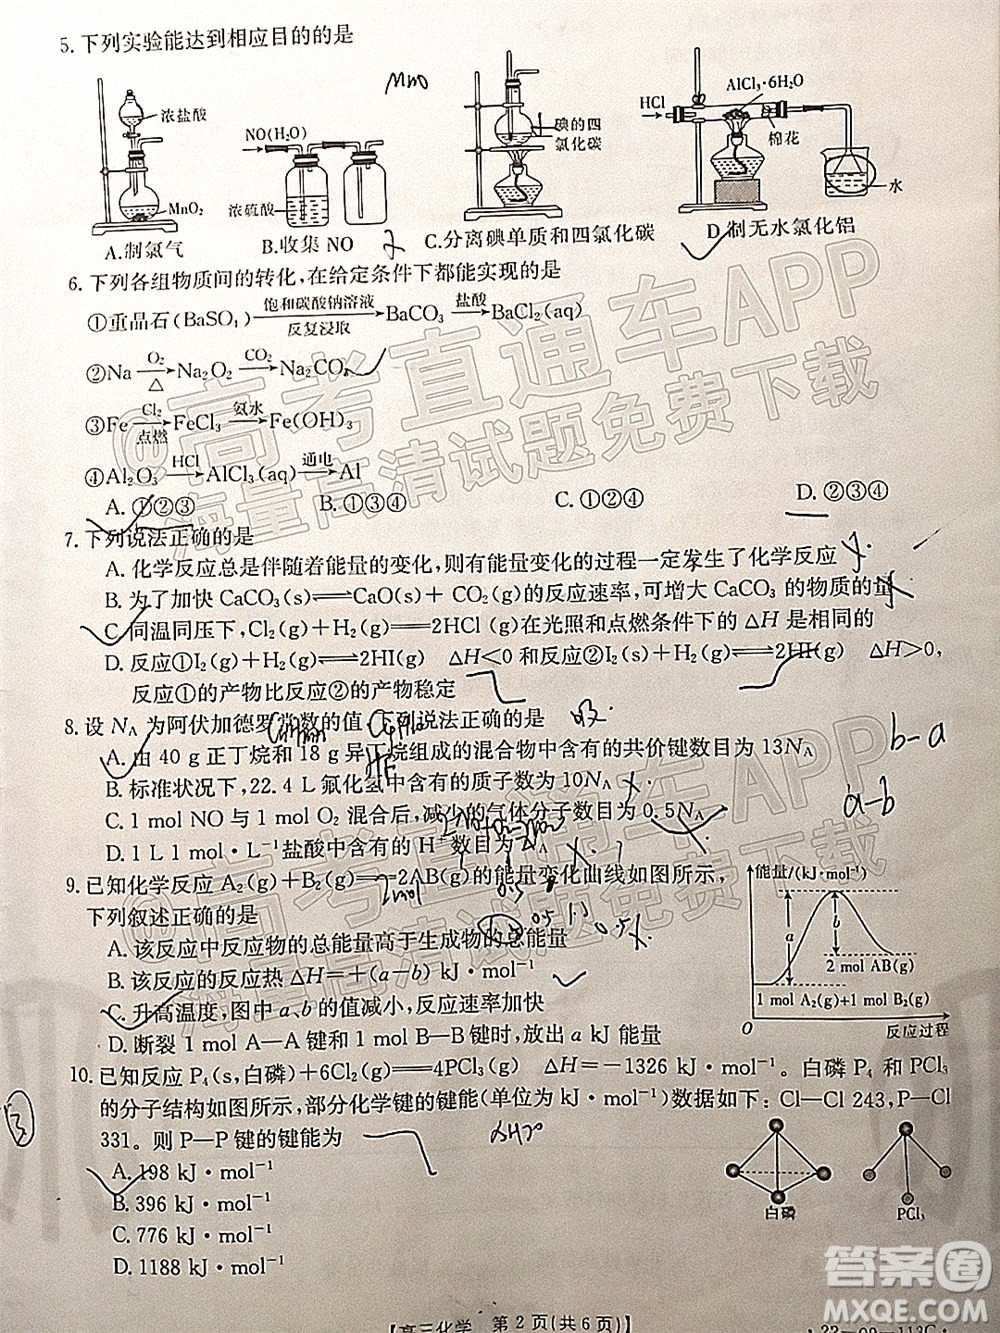 5. 下列实验能达到相应目的的是
MnO
浓盐酸
MnO₂
NO(H₂O)
浓硫酸
碘的四
氯化碳
HCl
AlCl₃·6H₂O
棉花
水
A. 制氯气
B. 收集 NO
C. 分离碘单质和四氯化碳
D. 制无水氯化铝
6. 下列各组物质间的转化,在给定条件下都能实现的是
①重晶石(BaSO₄) 饱和碳酸钠溶液 反复浸取 → BaCO₃ 盐酸 → BaCl₂(aq)
②Na O₂ △ → Na₂O₂ CO₂ → Na₂CO₃
③Fe Cl₂ 点燃 → FeCl₃ 氨水 → Fe(OH)₃
④Al₂O₃ HCl → AlCl₃(aq) 通电 → Al
A. ①②③
B. ①③④
C. ①②④
D. ②③④
7. 下列说法正确的是
A. 化学反应总是伴随着能量的变化,则有能量变化的过程一定发生了化学反应
B. 为了加快 CaCO₃(s)⇌CaO(s)+CO₂(g)的反应速率,可增大 CaCO₃ 的物质的量
C. 同温同压下,Cl₂(g)+H₂(g)═2HCl(g)在光照和点燃条件下的 ΔH 是相同的
D. 反应①I₂(g)+H₂(g)⇌2HI(g) ΔH<0 和反应②I₂(s)+H₂(g)⇌2HI(g) ΔH>0,
反应①的产物比反应②的产物稳定
8. 设 N_A 为阿伏加德罗常数的值,下列说法正确的是
A. 由 40 g 正丁烷和 18 g 异丁烷组成的混合物中含有的共价键数目为 13N_A
B. 标准状况下,22.4 L 氟化氢中含有的质子数为 10N_A
HF
C. 1 mol NO 与 1 mol O₂ 混合后,减少的气体分子数为 0.5N_A
D. 1 L 1 mol·L⁻¹盐酸中含有的 H⁺数目为 N_A
b-a
a-b
9. 已知化学反应 A₂(g)+B₂(g)═2AB(g)的能量变化曲线如图所示,
下列叙述正确的是
A. 该反应中反应物的总能量高于生成物的总能量
B. 该反应的反应热 ΔH=+(a-b) kJ·mol⁻¹
C. 升高温度,图中 a、b 的值减小,反应速率加快
D. 断裂 1 mol A—A 键和 1 mol B—B 键时,放出 a kJ 能量
2mol
0.5
能量/(kJ·mol⁻¹)
a
b
2 mol AB(g)
1 mol A₂(g)+1 mol B₂(g)
O
反应过程
10. 已知反应 P₄(s,白磷)+6Cl₂(g)═4PCl₃(g) ΔH=-1326 kJ·mol⁻¹。白磷 P₄ 和 PCl₃
的分子结构如图所示,部分化学键的键能(单位为 kJ·mol⁻¹)数据如下:Cl—Cl 243,P—Cl
331。则 P—P 键的键能为
③
A. 198 kJ·mol⁻¹
B. 396 kJ·mol⁻¹
C. 776 kJ·mol⁻¹
D. 1188 kJ·mol⁻¹
白磷
PCl₃
【高三化学 第 2 页(共 6 页)】
·23-09-113C·
@高考直通车APP
海量高清试题免费下载
@高考直通车APP
海量高清试题免费下载
答案圈
MXQE.COM